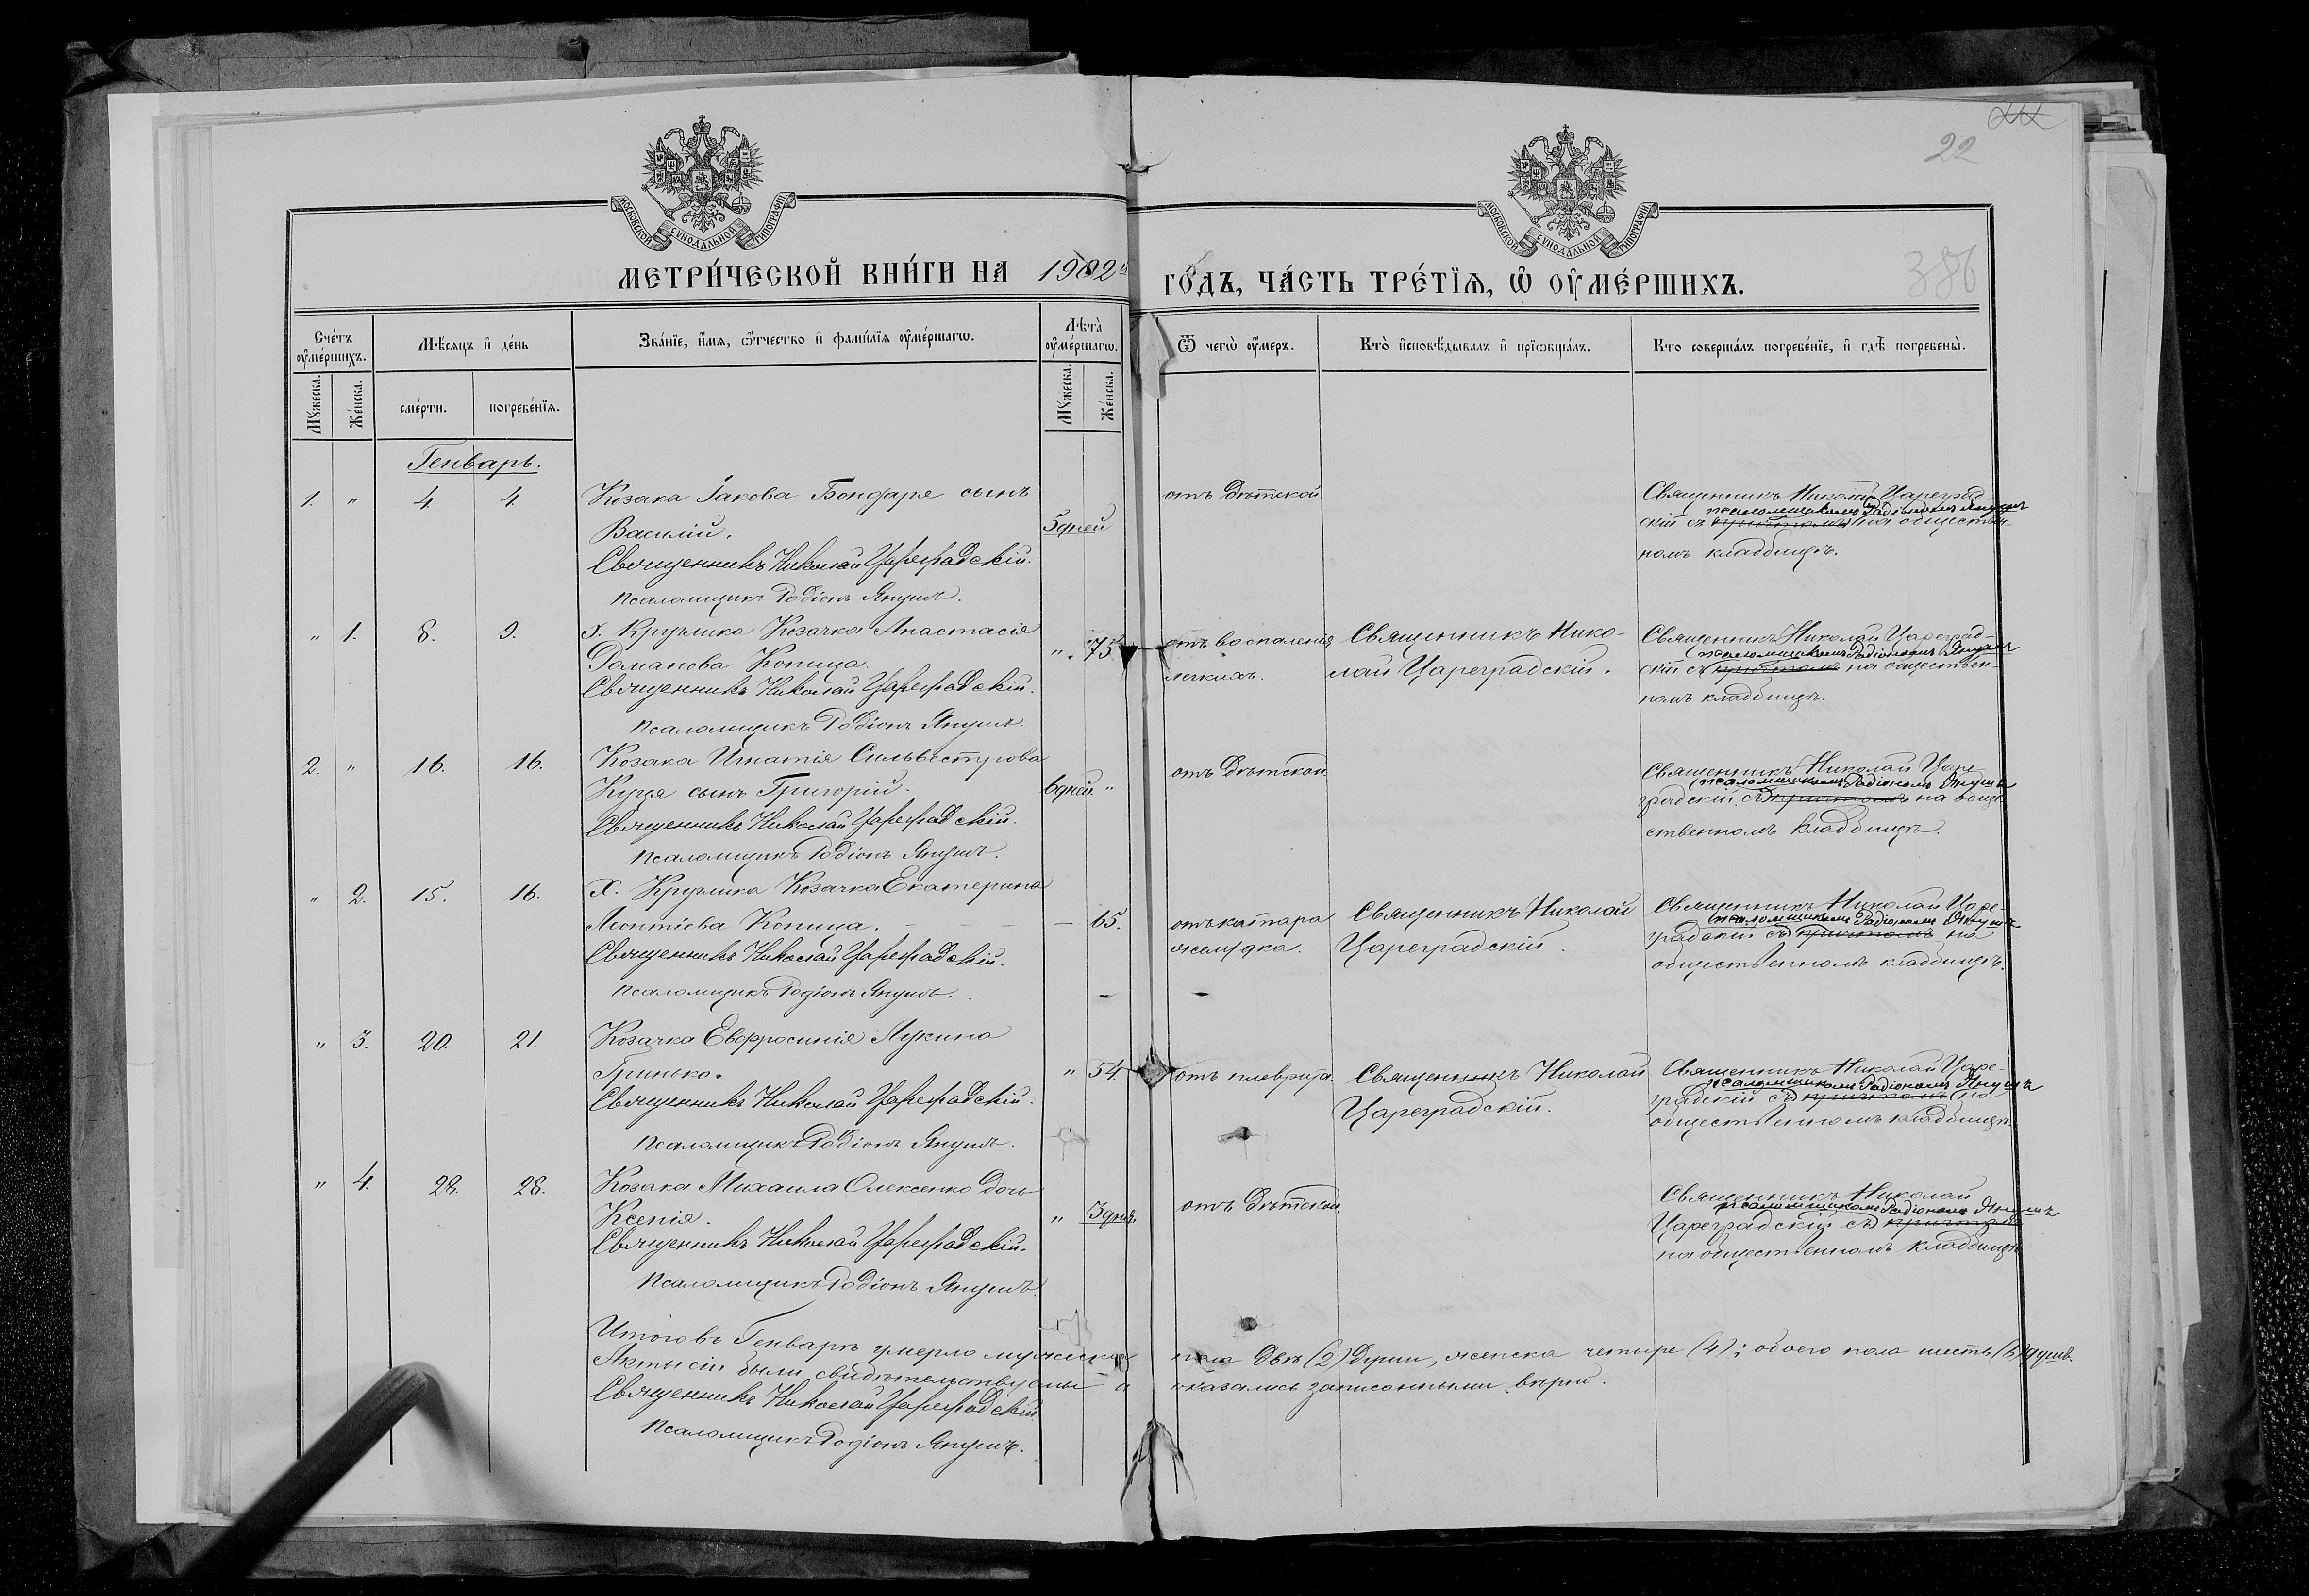 22
386
МОСКОВСКОЙ СѴНОДАЛЬНОЙ ТИПОГРАФІИ
МОСКОВСКОЙ СѴНОДАЛЬНОЙ ТИПОГРАФІИ
МЕТРИ́ЧЕСКОЙ КНИ́ГИ НА 1902й ГО́ДЪ, ЧА́СТЬ ТРЕ́ТЇѦ, Ѡ҆ ОУ҆МЕ́РШИХЪ.
Сче́тъ оу҆ме́ршихъ.
Мѣ́сѧцъ и҆ де́нь
Зва́нїе, и҆́мѧ, ѻ҆́тчество и҆ фамилїѧ оу҆ме́ршагѡ.
Лѣта̀ оу҆ме́ршагѡ.
Ѿ чегѡ̀ оу҆́меръ.
Кто̀ и҆сповѣ́дывалъ и҆ прїѡбща́лъ.
Кто соверша́лъ погребе́нїе, и҆ гдѣ̀ погребены̀.
Мꙋ́жеска.
Же́нска.
сме́рти.
погребе́нїѧ.
Мꙋ́жеска.
Же́нска.
Генварь.
1. " 4. 4. Козака Іакова Бондаря сынъ
Василій. 5 дней
Священникъ Николай Цареградскій.
Псаломщикъ Родіонъ Янушъ.
отъ дѣтской
Священникъ Николай Цареград-
псаломщикомъ Родіономъ Янушъ
скій съ причтомъ на обществен-
номъ кладбищѣ.
" 1. 8. 9. Х. Круглика Козачка Анастасія
Романова Копица. " 75
Священникъ Николай Цареградскій.
Псаломщикъ Родіонъ Янушъ.
отъ воспаленія
легкихъ.
Священникъ Нико-
лай Цареградскій.
Священникъ Николай Цареград-
псаломщикомъ Родіономъ Янушъ
скій съ причтомъ на обществен-
номъ кладбищѣ.
2. " 16. 16. Козака Игнатія Сильвестрова
Куця сынъ Григорій. 6 дней "
Священникъ Николай Цареградскій.
Псаломщикъ Родіонъ Янушъ.
отъ дѣтской.
Священникъ Николай Царе-
псаломщикомъ Родіономъ Янушъ
градскій съ причтомъ на обще-
ственномъ кладбищѣ.
" 2. 15. 16. Х. Круглика Козачка Екатерина
Леонтіева Копица. — 65.
Священникъ Николай Цареградскій.
Псаломщикъ Родіонъ Янушъ.
отъ катара
желудка.
Священникъ Николай
Цареградскій.
Священникъ Николай Царе-
псаломщикомъ Родіономъ Янушъ
градскій съ причтомъ на
общественномъ кладбищѣ.
" 3. 20. 21. Козачка Евфросинія Лукина
Гринько. " 54.
Священникъ Николай Цареградскій.
Псаломщикъ Родіонъ Янушъ.
отъ плеврита.
Священникъ Николай
Цареградскій.
Священникъ Николай Царе-
псаломщикомъ Родіономъ Янушъ
градскій съ причтомъ на
общественномъ кладбищѣ.
" 4. 28. 28. Козака Михаила Олексенко дочь
Ксенія. " 3 дня.
Священникъ Николай Цареградскій.
Псаломщикъ Родіонъ Янушъ.
отъ дѣтской.
Священникъ Николай
псаломщикомъ Родіономъ Янушъ
Цареградскій съ причтомъ
на общественномъ кладбищѣ
Итого въ Генварѣ умерло мужеска пола двѣ (2) души, женска четыре (4); обоего пола шесть (6) душъ.
Акты сіи были свидѣтельствуемы и оказались записанными вѣрно.
Священникъ Николай Цареградскій
Псаломщикъ Родіонъ Янушъ.